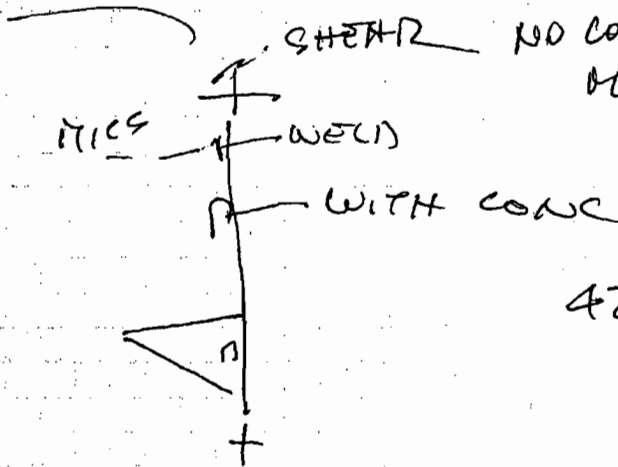 SHEAR NO CO
MICS WELD
WITH CONC